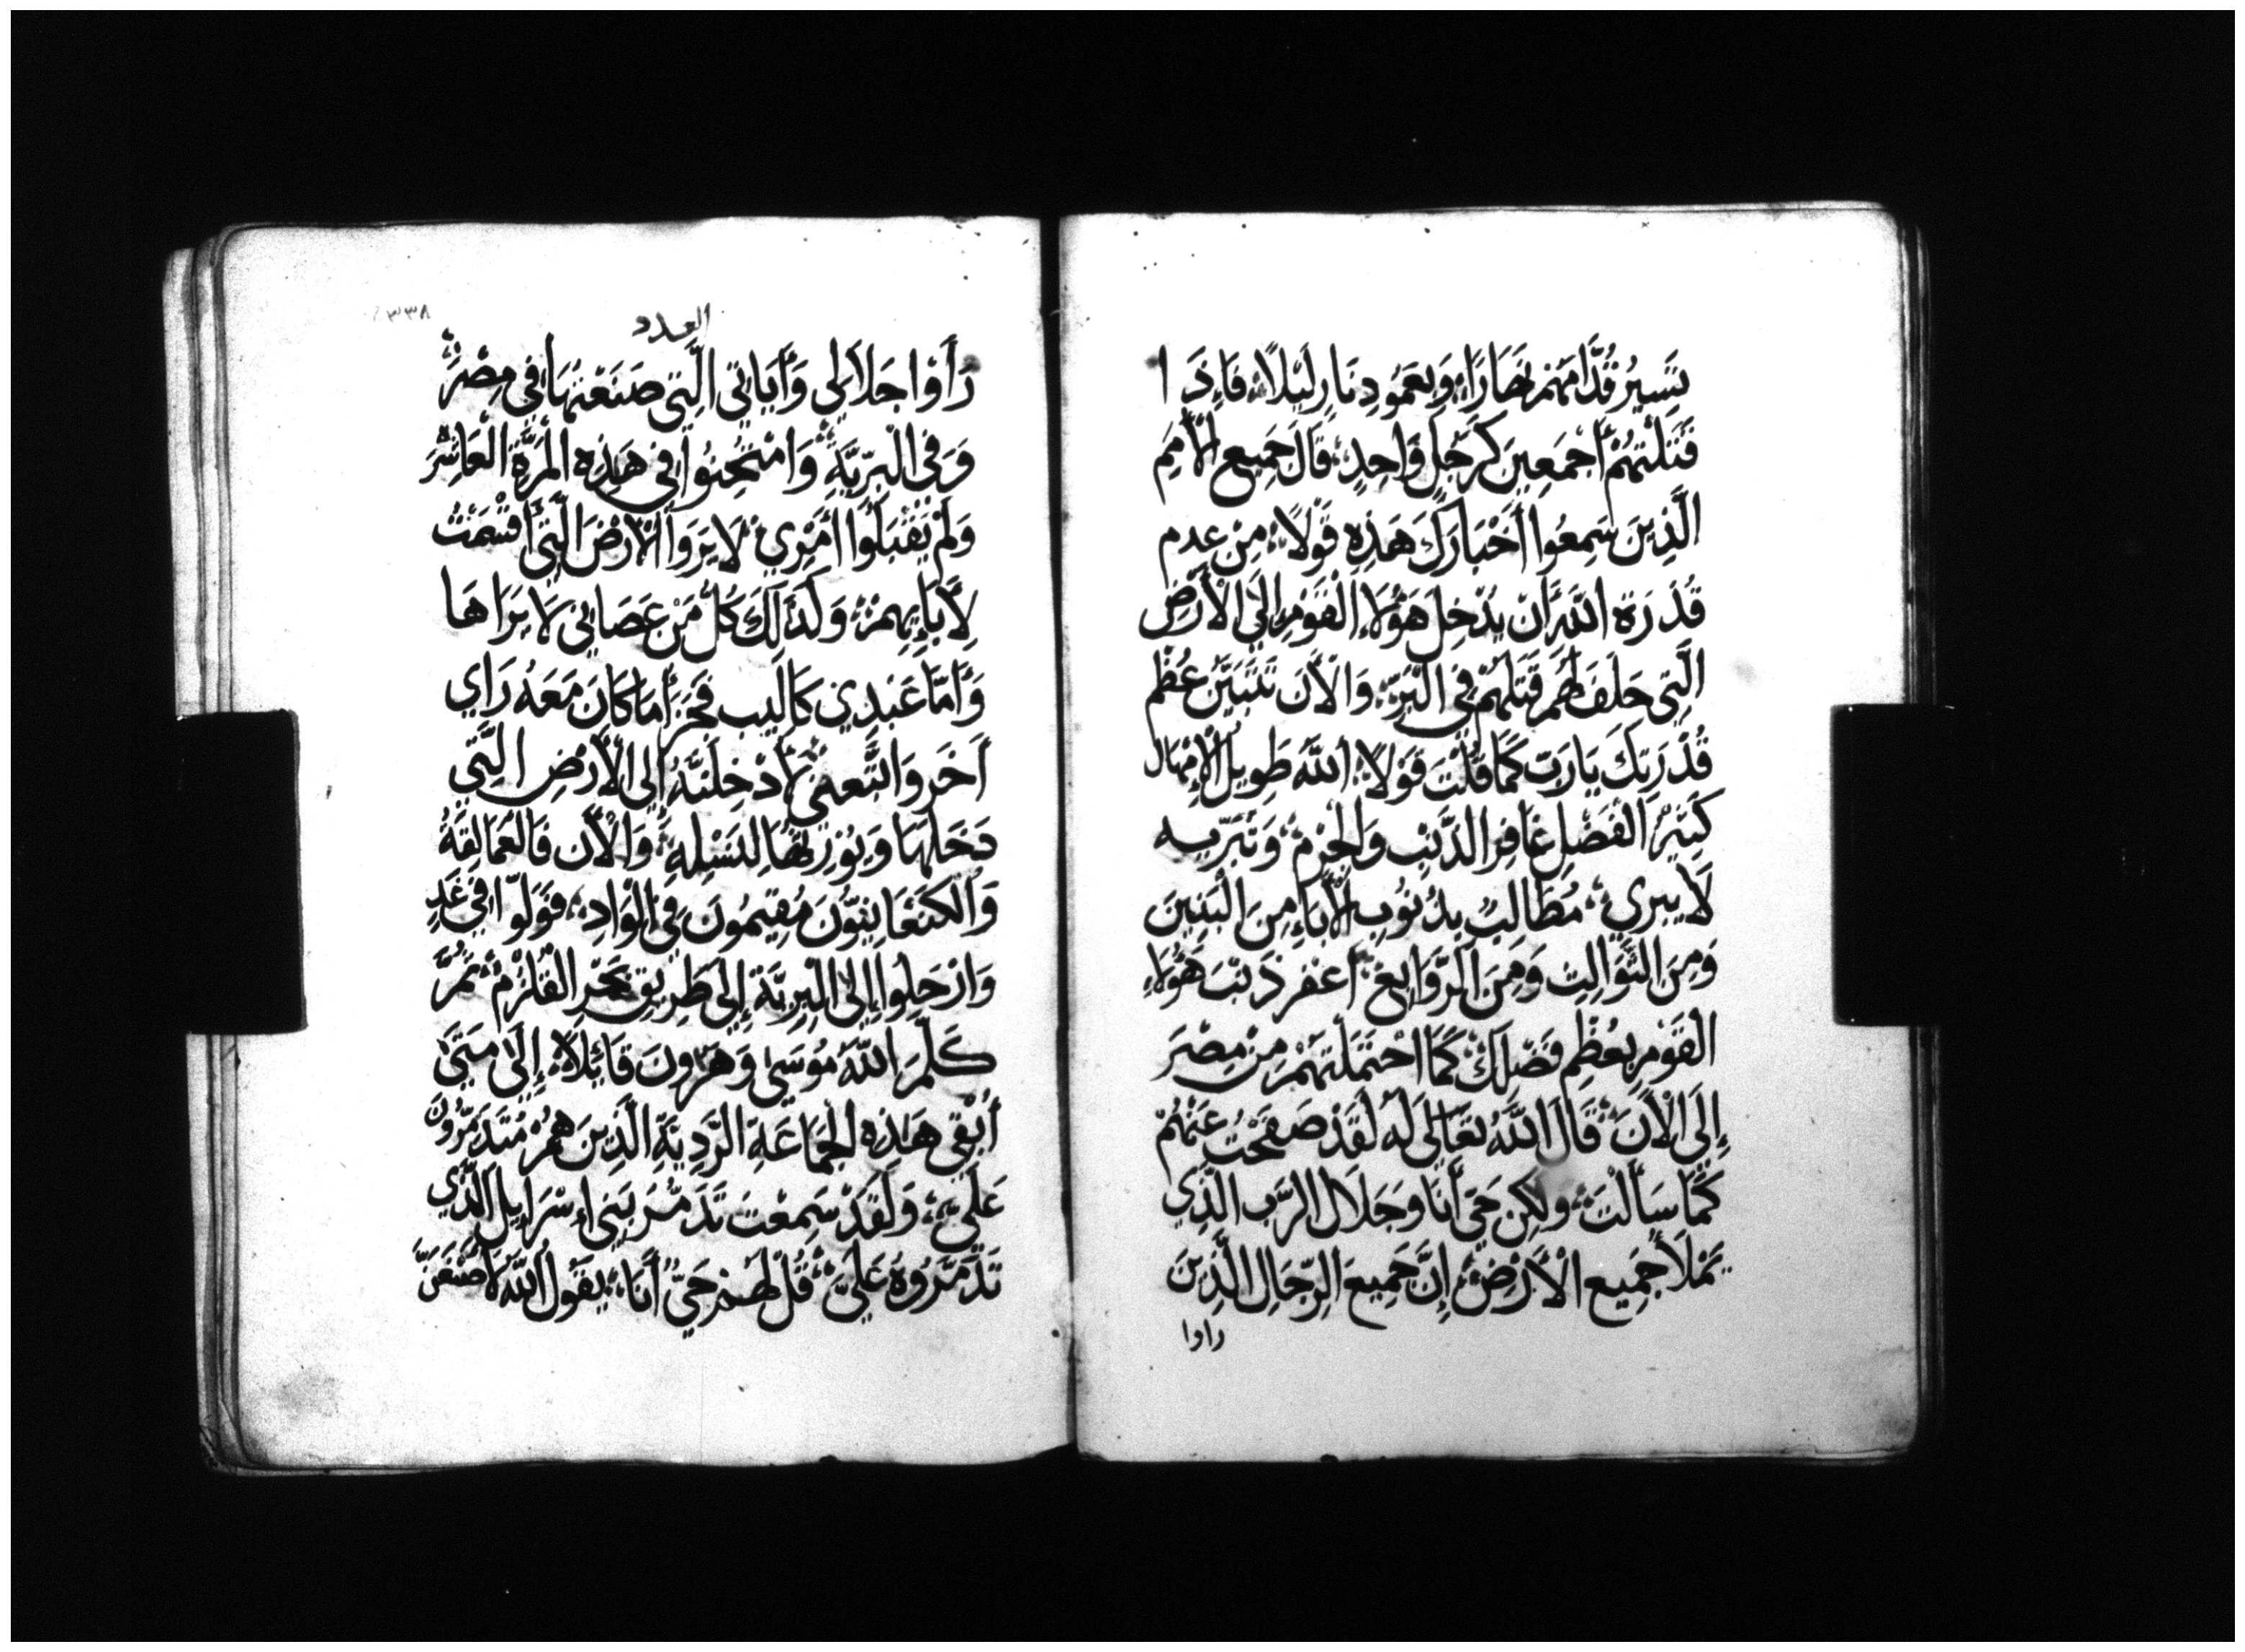 تَسِيرُ قُدَّامَهُمْ نَهَارًا، وَبِعَمُودِ نَارٍ لَيْلًا، فَاِذَا
قَتَلْتَهُمْ أَجْمَعِينَ كَرَجُلٍ وَاحِدٍ، قَالَ جَمِيعِ الْأُمَمِ
الَّذِينَ سَمِعُوا أَخْبَارَكَ هَذِهِ قَوْلًا، مِنْ عِدمِ
قُدْرَةِ اللَّهِ أَنْ يُدْخِلَ هَؤُلَاءِ الْقَوْمِ إِلَى الْأَرْضِ
الَّتِي حَلَفَ لَهُمْ قَتَلَهُمْ فِي الْبَرِّيَّةِ، وَالْآَنَ تَتَبَيَّنُ عُظْمِ
قُدْرَتِكَ يَارَبِّ كَمَا قُلْتَ قَوْلًا، اللَّهُ طَوِيلُ الْإِمْهَالِ
كَثِيرُ الْفَضْلِ غَافِرُ الذَّنْبِ وَالْجُرْمِ، وَتَبَرِّيه
لَا يبري، مُطَالِبُ بِذُنُوبِ الْأَبَاءِ مِنَ الْبَنِينَ
وَمِنَ الثَّوَالِثِ وَمِنَ الرَّوَابِعْ، اغفر ذَنْبَ هَؤُلَاءِ
الْقَوْمِ بِعُظْمِ فَضْلِكَ، كَمَا احْتَمَلْتَهُمْ مِنْ مِصْرَ
إِلَى الْآَنَ، قَالَ اللَّهُ تَعَالَى لَهُ لَقَدْ صَفَحْتُ عَنْهُمْ
كَمَا سَأَلْتَ، ولَكِنْ حَيٌّ أَنَا وَجَلَالَ الرَّبِّ الَّذِي
يَمْلَأُ جَمِيعِ الْأَرْضِ، إِنَّ جَمِيعَ الرِّجَالِ الَّذِينَ
راوا
العدد
رَأَوْا جَلَالِي وَأَيَاتِي الَّتِي صَنَعْتُهَا فِي مِصْرَ،
وَفِي الْبَرِّيَّةِ، وَامْتَحَنُوا فِي هَذِهِ الْمَرَّةِ الْعَاشِرَ
وَلَمْ يَقْبَلُوا أَمْرِي، لَا يَرَوا الْأَرْضَ الَّتِي أَقْسَمْتُ
لِآَبَايِهِمْ، وَكَذَلِكَ كُلُّ مَنْ عَصَانِي لَا يَرَاهَا
وَأَمَّا عَبْدِي كَالِيب فَجَزَاءُ مَا كَانَ مَعَهُ رَاي
اَخَر وَاتَّبَعَنِي، أُدْخِلَنَّهُ إِلَى الْأَرْضِ الَّتِي
دَخَلَهَا وَيُورِثُهَا لِنَسْلِهِ، وَالْآَن فَالْعَمَالِقَةُ
وَالْكَنْعَانِيُّونَ مُقِيمُونَ فِي الْوَادِ، فَوَلُّوا فِي غَدِ
وَارْحَلُوا إِلَى الْبَرِّيَّةِ إِلَى طَرِيقِ بَحْرِ الْقُلْزُمْ، ثُمَّ
كَلَّمَ اللَّهُ مُوسَى وَهَرُونَ قَائِلًا، إِلَى مَتَى
أُبْقِي هَذِهِ الْجَمَاعَةِ الرَّدِيَّةِ الَّذِينَ هُمْ مُتَذَمِّرُونَ
عَلَيَّ، وَلَقَدْ سَمِعْتُ تَذَمُّرَ بَنِي إِسْرَايِل الَّذِي
تَذَمَّرُوهُ عَلَيَّ، قُلْ لَهُمْ حَيٌّ أَنَا، يَقُولُ اللَّهُ لَأَصْنَعَنَّ